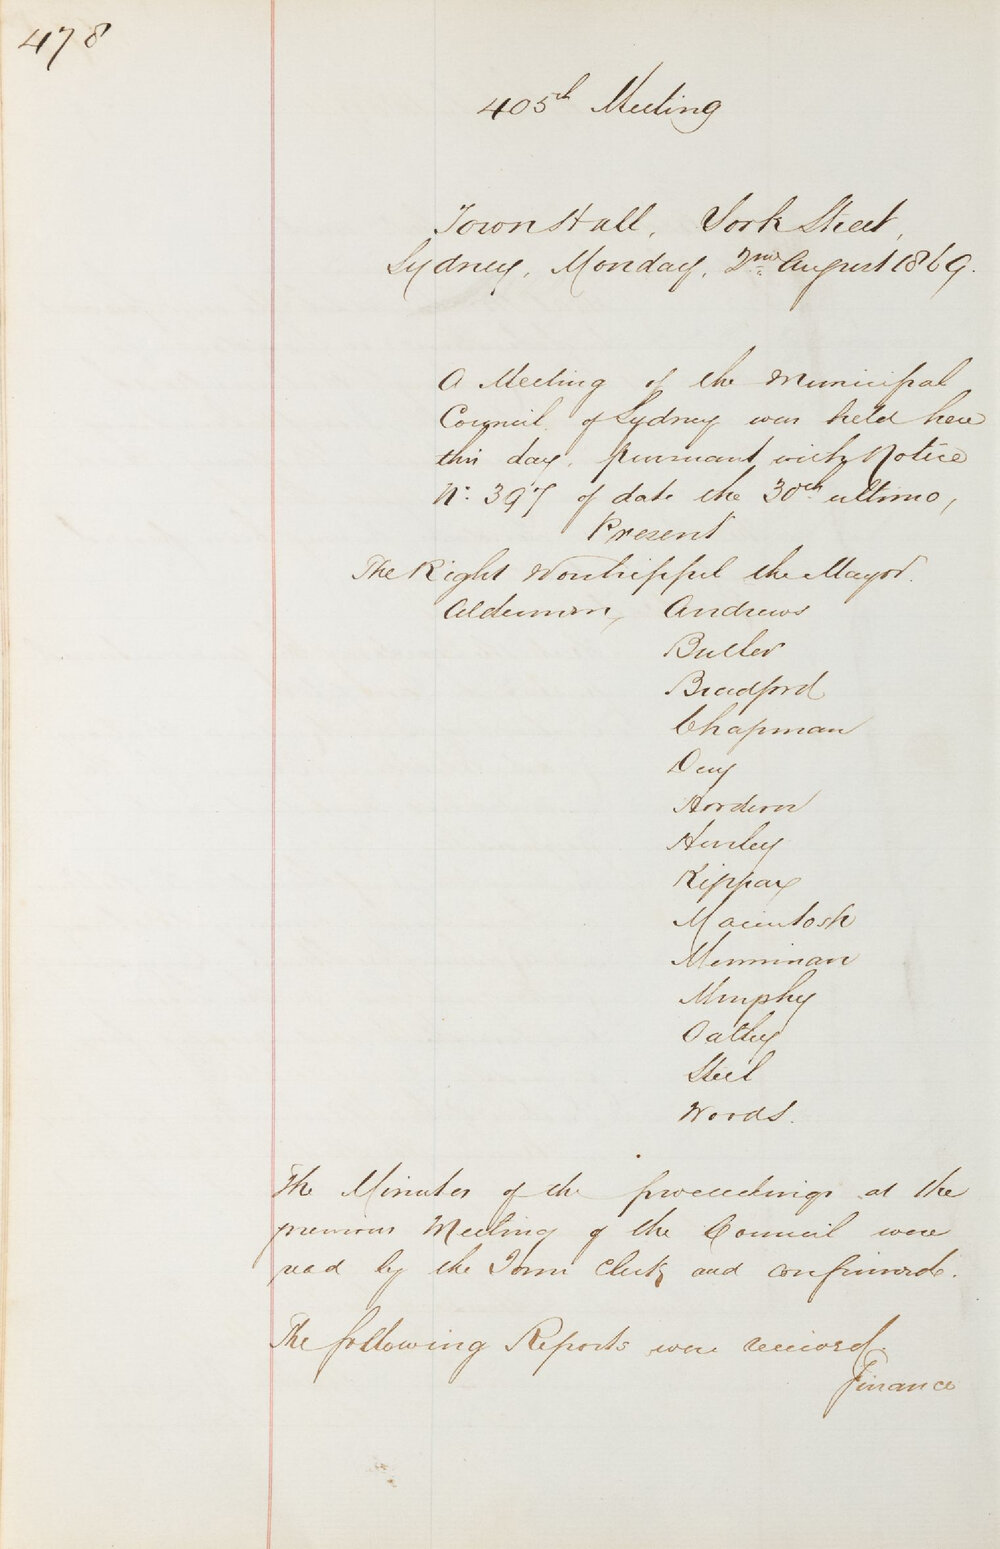 478
405th Meeting
Town Hall, York Street,
Sydney, Monday, 2nd August 1869.
A Meeting of the Municipal
Council of Sydney was held here
this day, pursuant with Notice
No. 397 of date the 30th ultimo,
Present
The Right Worshipful the Mayor.
Aldermen, Andrews
Butler
Bradford
Chapman
Day
Hordern
Hurley
Kippax
Macintosh
Merriman
Murphy
Oatley
Steel
Woods.
The Minutes of the proceedings at the
previous Meeting of the Council were
read by the Town Clerk and confirmed.
The following Reports were received.
Finance